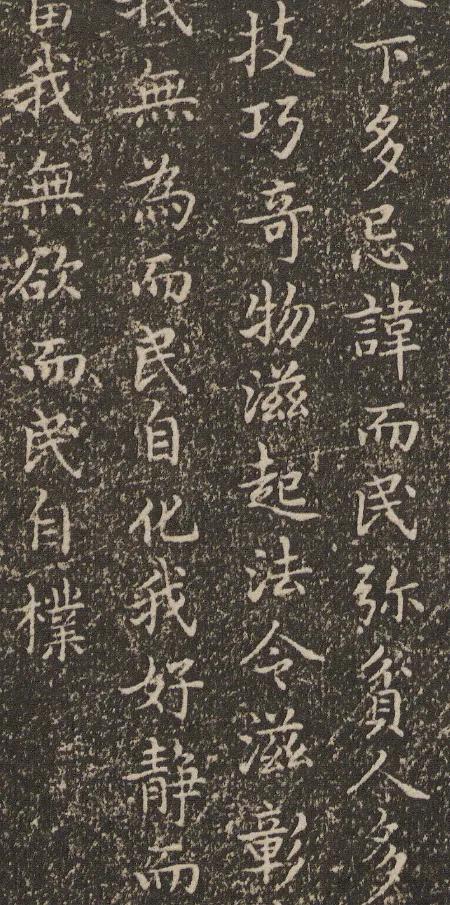 下多忌諱而民弥貧人多
技巧奇物滋起法令滋彰
我無為而民自化我好静而
富我無欲而民自樸